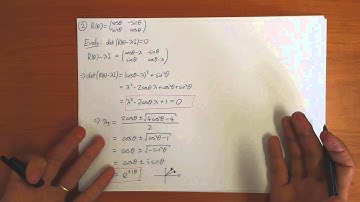 ② R(θ) = (cosθ -sinθ
sinθ cosθ)
Evals: det(R(θ)-λI) = 0
R(θ)-λI = (cosθ-λ -sinθ
sinθ cosθ-λ)
⇒ det(R(θ)-λI) = (cosθ-λ)² + sin²θ
= λ² - 2cosθλ + cos²θ + sin²θ
= λ² - 2cosθλ + 1 = 0
⇒ λ± = 2cosθ ± √4cos²θ-4
2
= cosθ ± √cos²θ-1
= cosθ ± √-sin²θ
= cosθ ± i sinθ
= e^±iθ